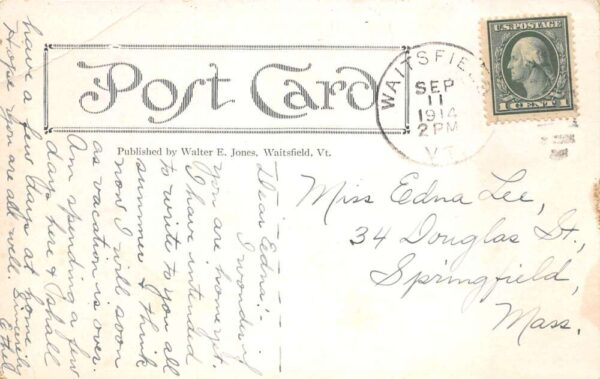 Post Card
Published by Walter E. Jones, Waitsfield, Vt.
WAITSFIELD
SEP
11
1914
2 PM
VT.
U.S. POSTAGE
1 CENT 1
Miss Edna Lee,
34 Douglas St.,
Springfield,
Mass.
Dear Edna:-
I wonder if
you are home yet.
I have intended
to write to you all
summer & think
now I will soon
as vacation is over.
Am spending a few
days here & shall
have a few days at home.
Hope you are all well. Sincerely
Ethel